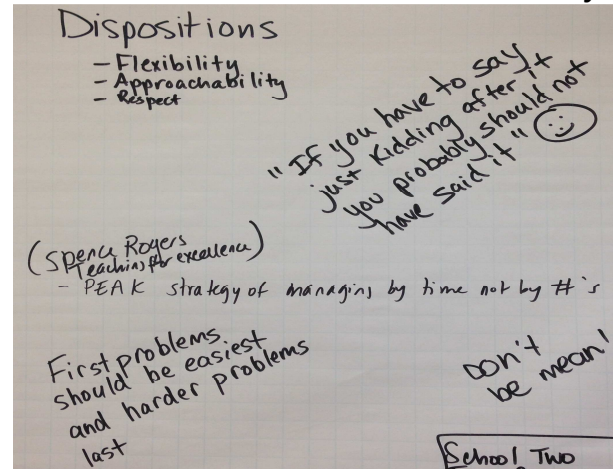 Dispositions
- Flexibility
- Approachability
- Respect
"If you have to say
just kidding after it
you probably should not
have said it"
(Spence Rogers
Teaching for excellence)
- PEAK strategy of managing by time not by #'s
First problems
should be easiest
and harder problems
last
Don't
be mean!
School Two